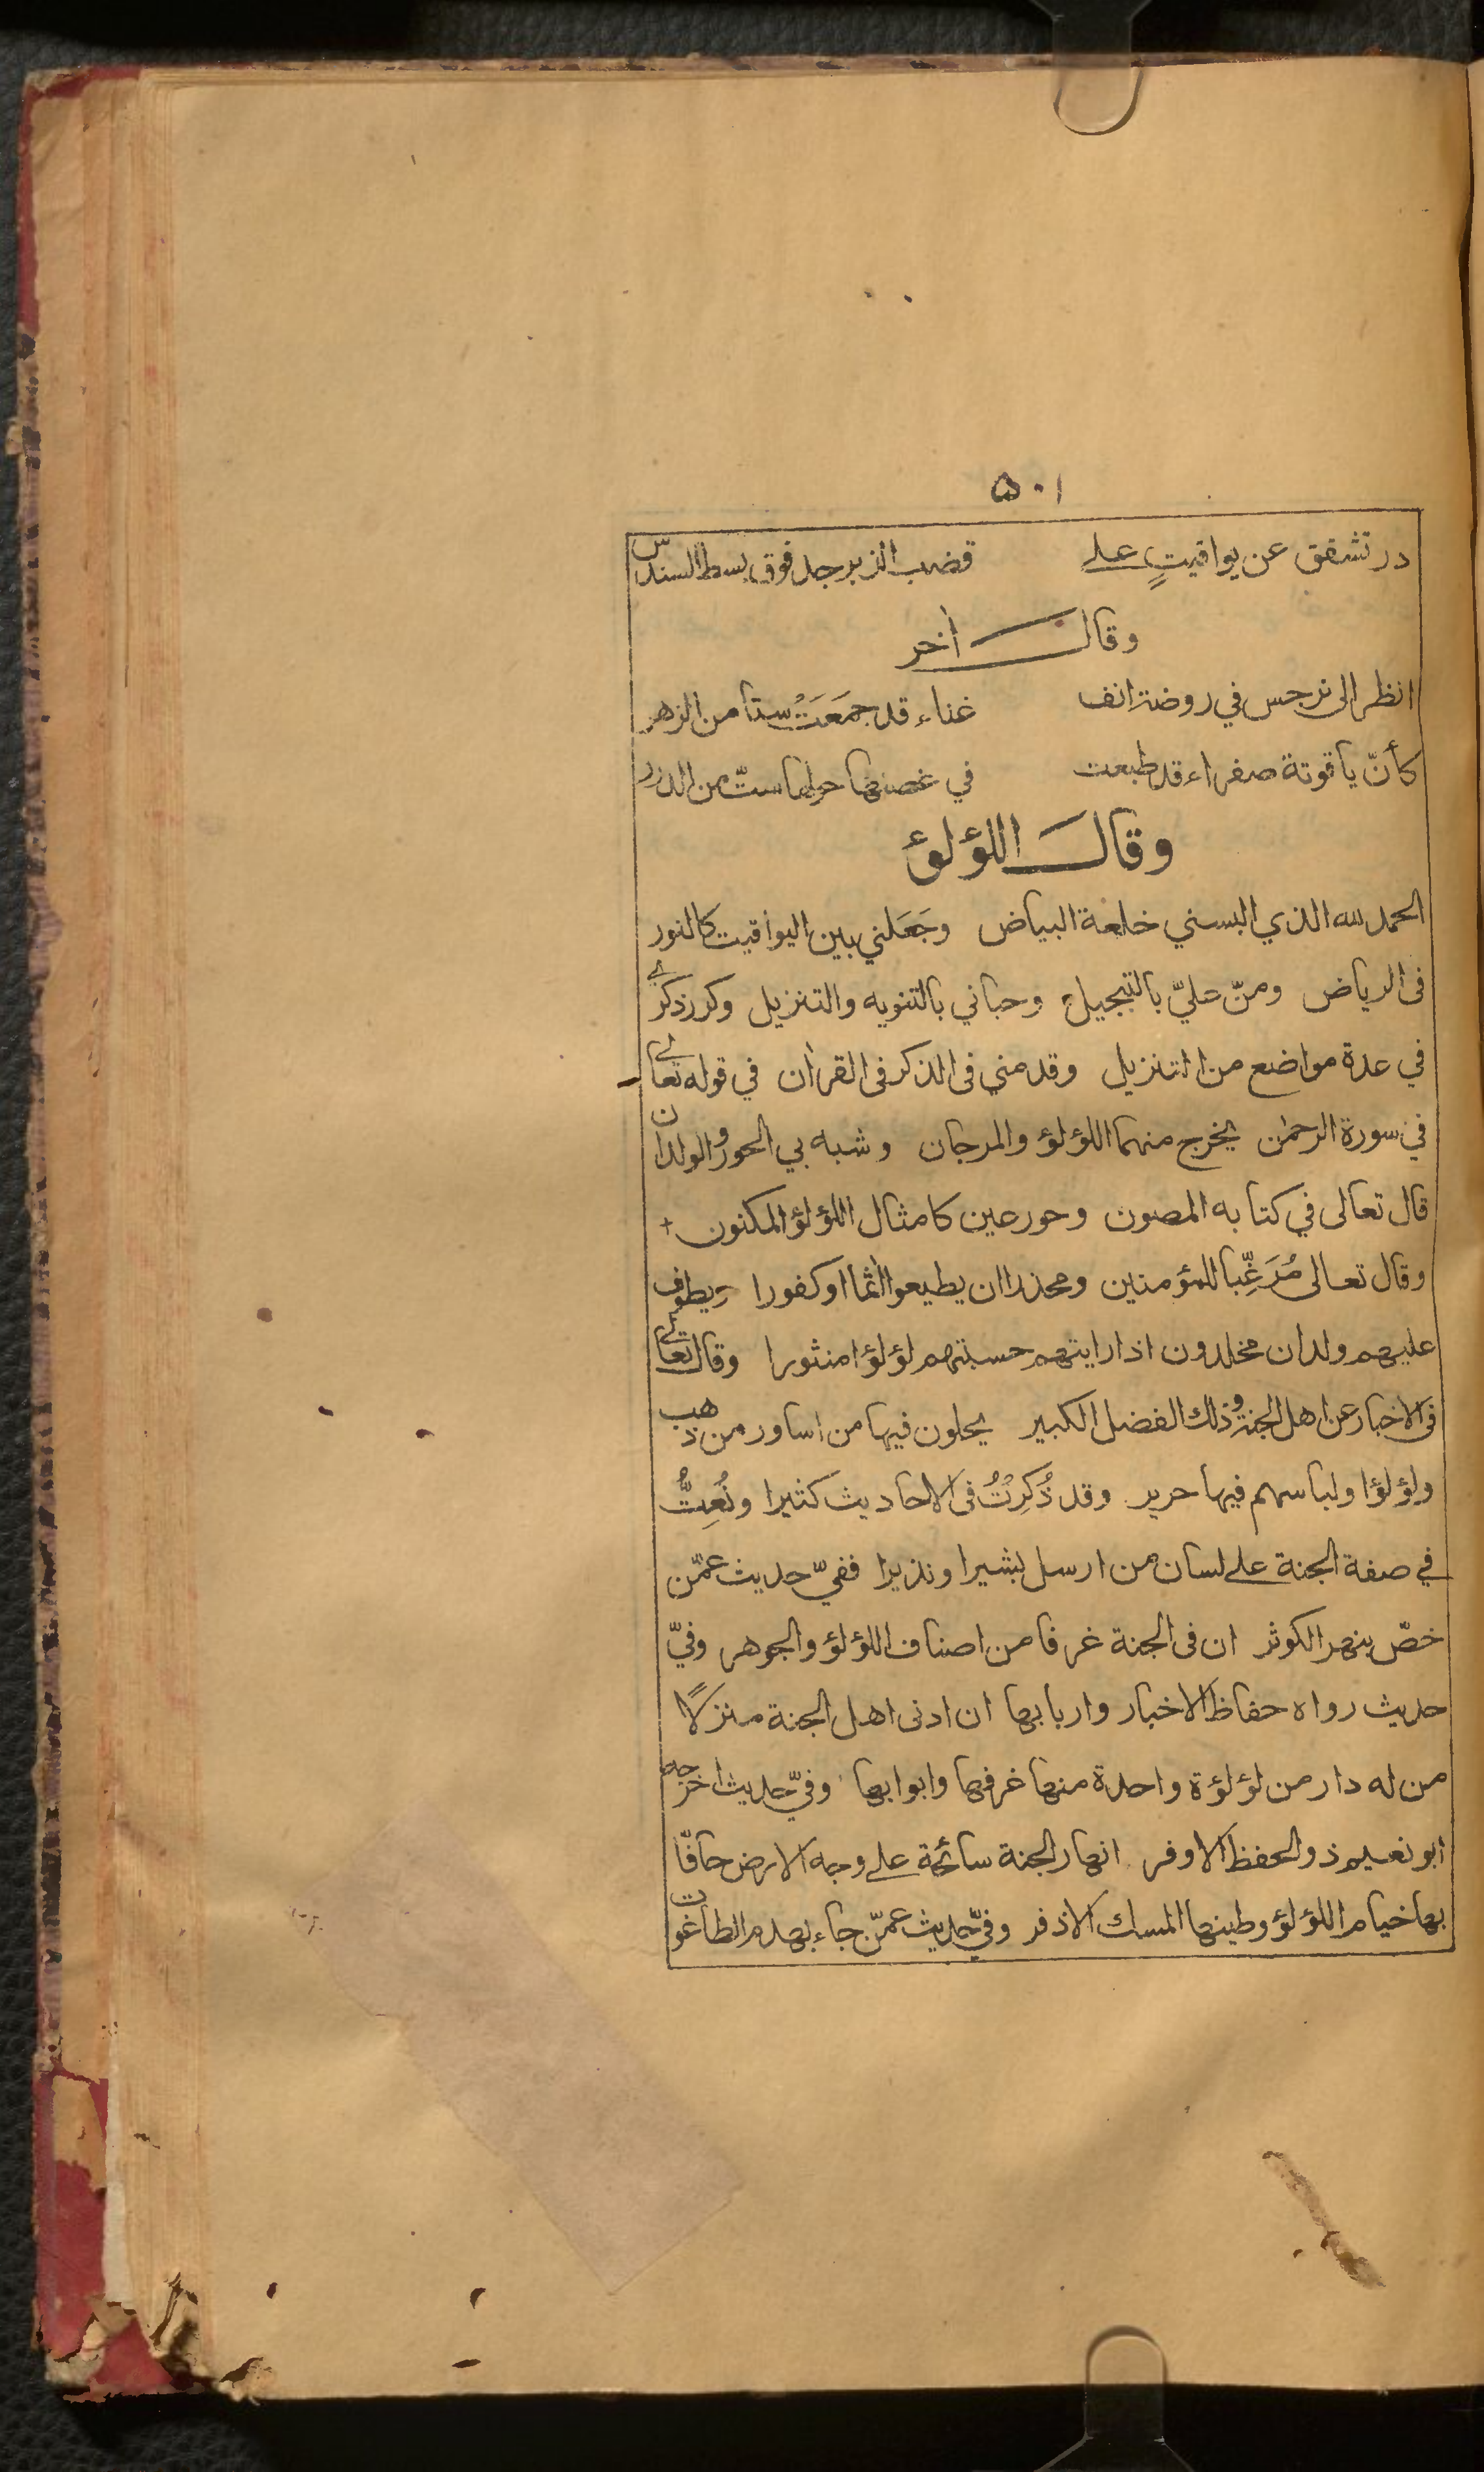 ٥٠١
در تشقق عن يواقيتٍ على قضب الزبرجد فوق بسط السندس
وقال أخر
انظر الى نرجس في روضة انف غناء قد جمَعَتْ ستا من الزهر
كأنّ ياقوتة صفراء قد طبعت في غصنها حولها ستّ من الدرر
وقال اللؤلؤ
الحمد لله الذي البسني خلعة البياض وجَعَلني بين اليواقيت كالنور
فى الرياض ومنّ عليّ بالتبجيل وحباني بالتنويه والتنزيل وكرر ذكري
في عدة مواضع من التنزيل وقدمني فى الذكر فى القرأن في قوله تعالى
في سورة الرحمٰن يخرج منهما اللؤلؤ والمرجان وشبه بي الحور والولدان
قال تعالى في كتابه المصون وحور عين كامثال اللؤلؤ المكنون
وقال تعالى مُرَغِّبا للمؤمنين ومحذرا ان يطيعوا اٰثما او كفورا ويطوف
عليهم ولدان مخلدون اذا رايتهم حسبتهم لؤلؤا منثورا وقال تعالى
فى الاخبار عن اهل الجنة وذلك الفضل الكبير يحلون فيها من اساور من ذهب
ولؤلؤا ولباسهم فيها حرير وقد ذُكِرْتُ فى الاحاديث كثيرا ونُعِتُّ
في صفة الجنة على لسان من ارسل بشيرا ونذيرا ففيّ حديث عمّن
خصّ بنهر الكوثر ان فى الجنة غرفا من اصناف اللؤلؤ والجوهر وفيّ
حديث رواه حفاظ الاخبار واربابها ان ادنى اهل الجنة منزلًا
من له دار من لؤلؤة واحدة منها غرفها وابوابها وفيّ حديث اخرجه
ابو نعيم ذو الحفظ الاوفر انهار الجنة سائحة على وجه الارض حافّا
بها خيام اللؤلؤ وطينها المسك الاذفر وفيّ حديث عمّن جاء بهدم الطاغوت